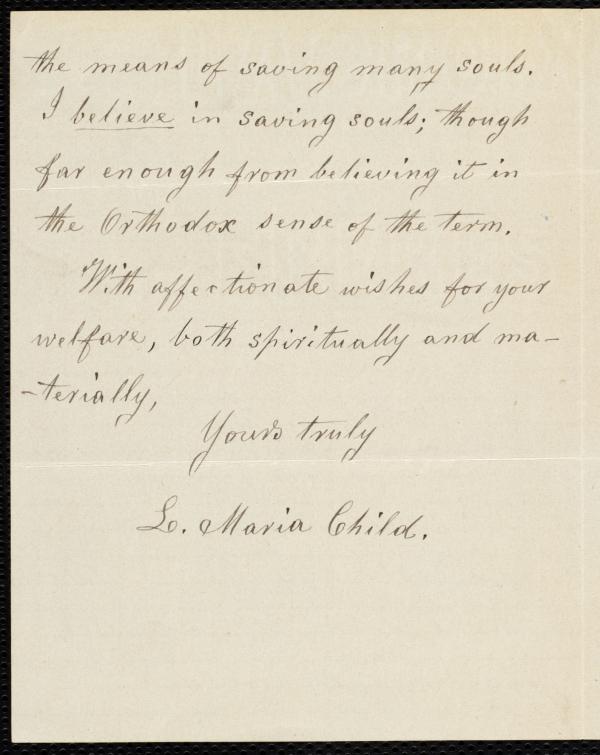 the means of saving many souls.
I believe in saving souls; though
far enough from believing it in
the Orthodox sense of the term.
With affectionate wishes for your
welfare, both spiritually and ma-
-terially,
Yours truly
L. Maria Child.